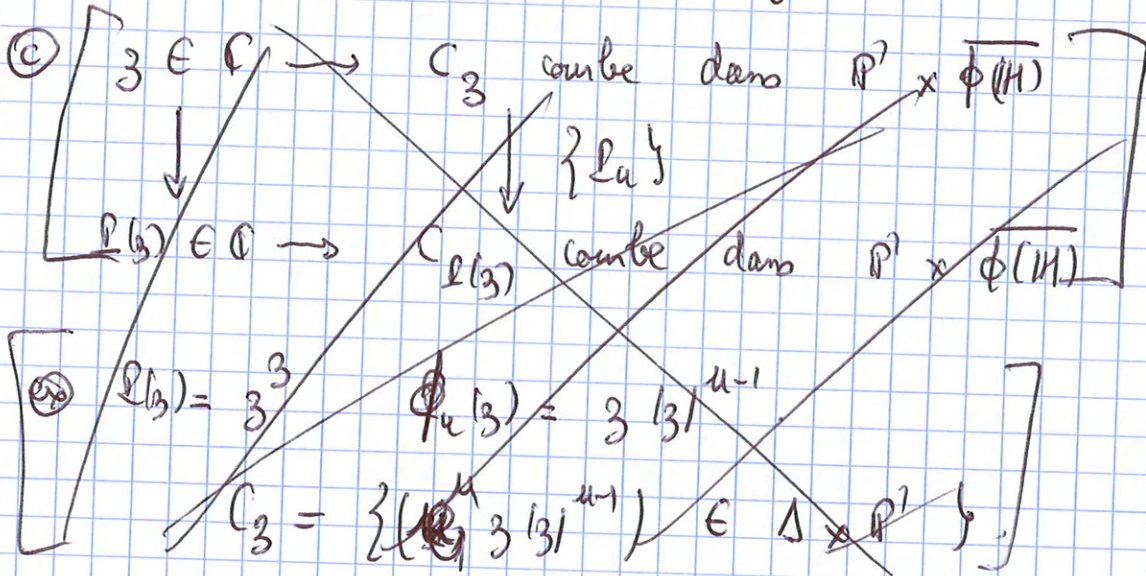 ⓒ z ∈ ℂ → C_z courbe dans ℙ¹ × \overline{ϕ(ℍ)}
↓ ↓ {P_u}
P(z) ∈ ℂ → C_{P(z)} courbe dans ℙ¹ × \overline{ϕ(ℍ)}
ex P(z) = z³ ϕ_u(z) = z |z|^{u-1}
C_z = {(u, z |z|^{u-1}) ∈ Δ × ℙ¹}